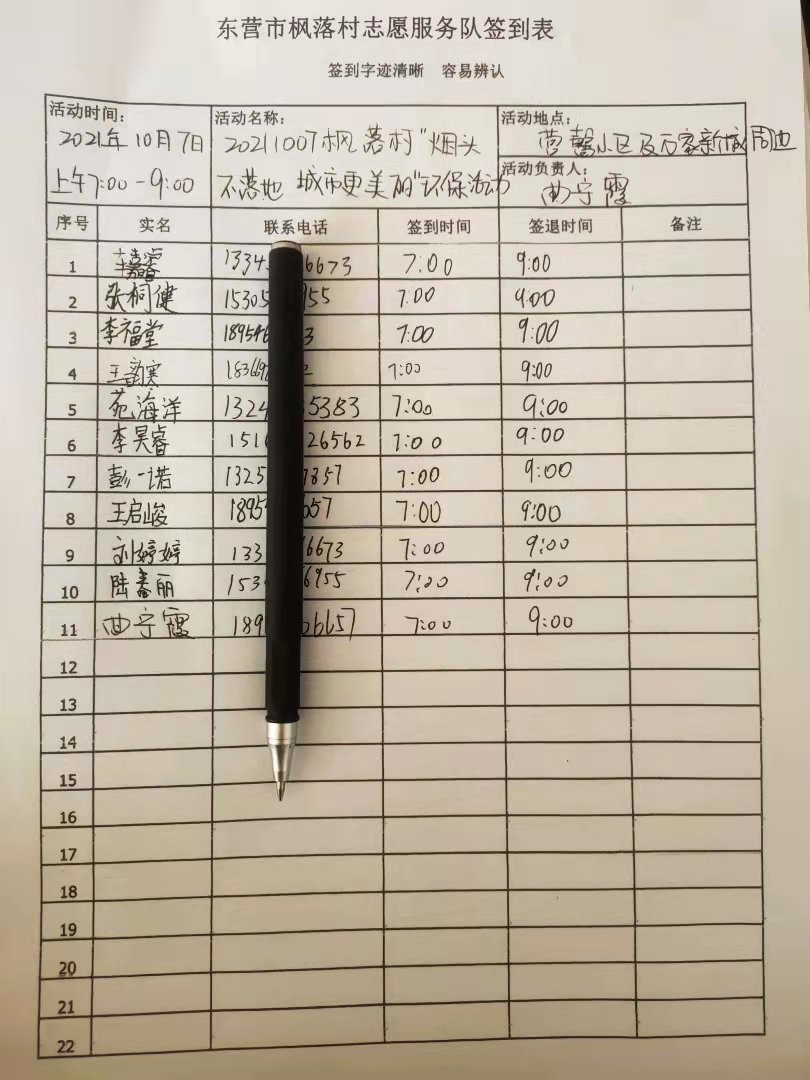 东营市枫落村志愿服务队签到表
签到字迹清晰 容易辨认
活动时间: 活动名称: 活动地点:
2021年10月7日 20211007枫落村"烟头 营馨小区及万家新城周边
活动负责人:
上午7:00-9:00 不落地 城市更美丽"环保活动 曲宁霞
序号 实名 联系电话 签到时间 签退时间 备注
1 1334 6673 7:00 9:00
2 张桐健 15305 955 7:00 9:00
3 李福堂 189546 3 7:00 9:00
4 18369 7:00 9:00
5 苑海洋 1324 5383 7:00 9:00
6 李昊睿 151 26562 7:00 9:00
7 彭一诺 1325 7857 7:00 9:00
8 王启峻 1895 657 7:00 9:00
9 刘婷婷 133 6673 7:00 9:00
10 陆春丽 153 6955 7:00 9:00
11 曲宁霞 189 26657 7:00 9:00
12
13
14
15
16
17
18
19
20
21
22